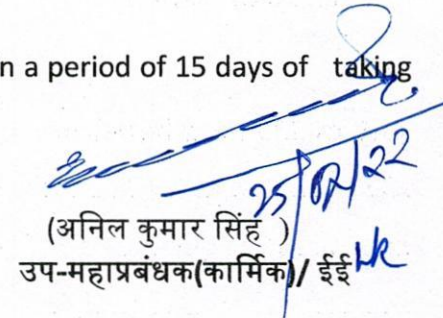 n a period of 15 days of taking
25/02/22
(अनिल कुमार सिंह )
उप-महाप्रबंधक(कार्मिक)/ ईई